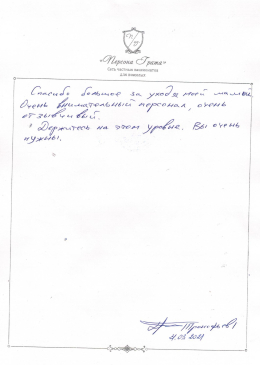 «Персона Грата»
Сеть частных пансионатов
для пожилых
Спасибо большое за уход за моей мамой
Очень внимательный персонал, очень
отзывчивый.
Держитесь на этом уровне. Вы очень
нужны.